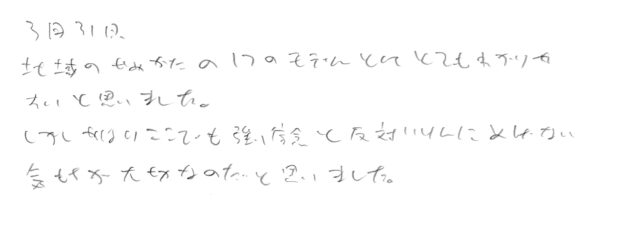 3月31日
地域のすすめかたの1つのモデルとしてとてもわかりや
すいと思いました。
しかしやはりここでも強い信念と反対いけんにまけない
気もちが大切なのだと思いました。